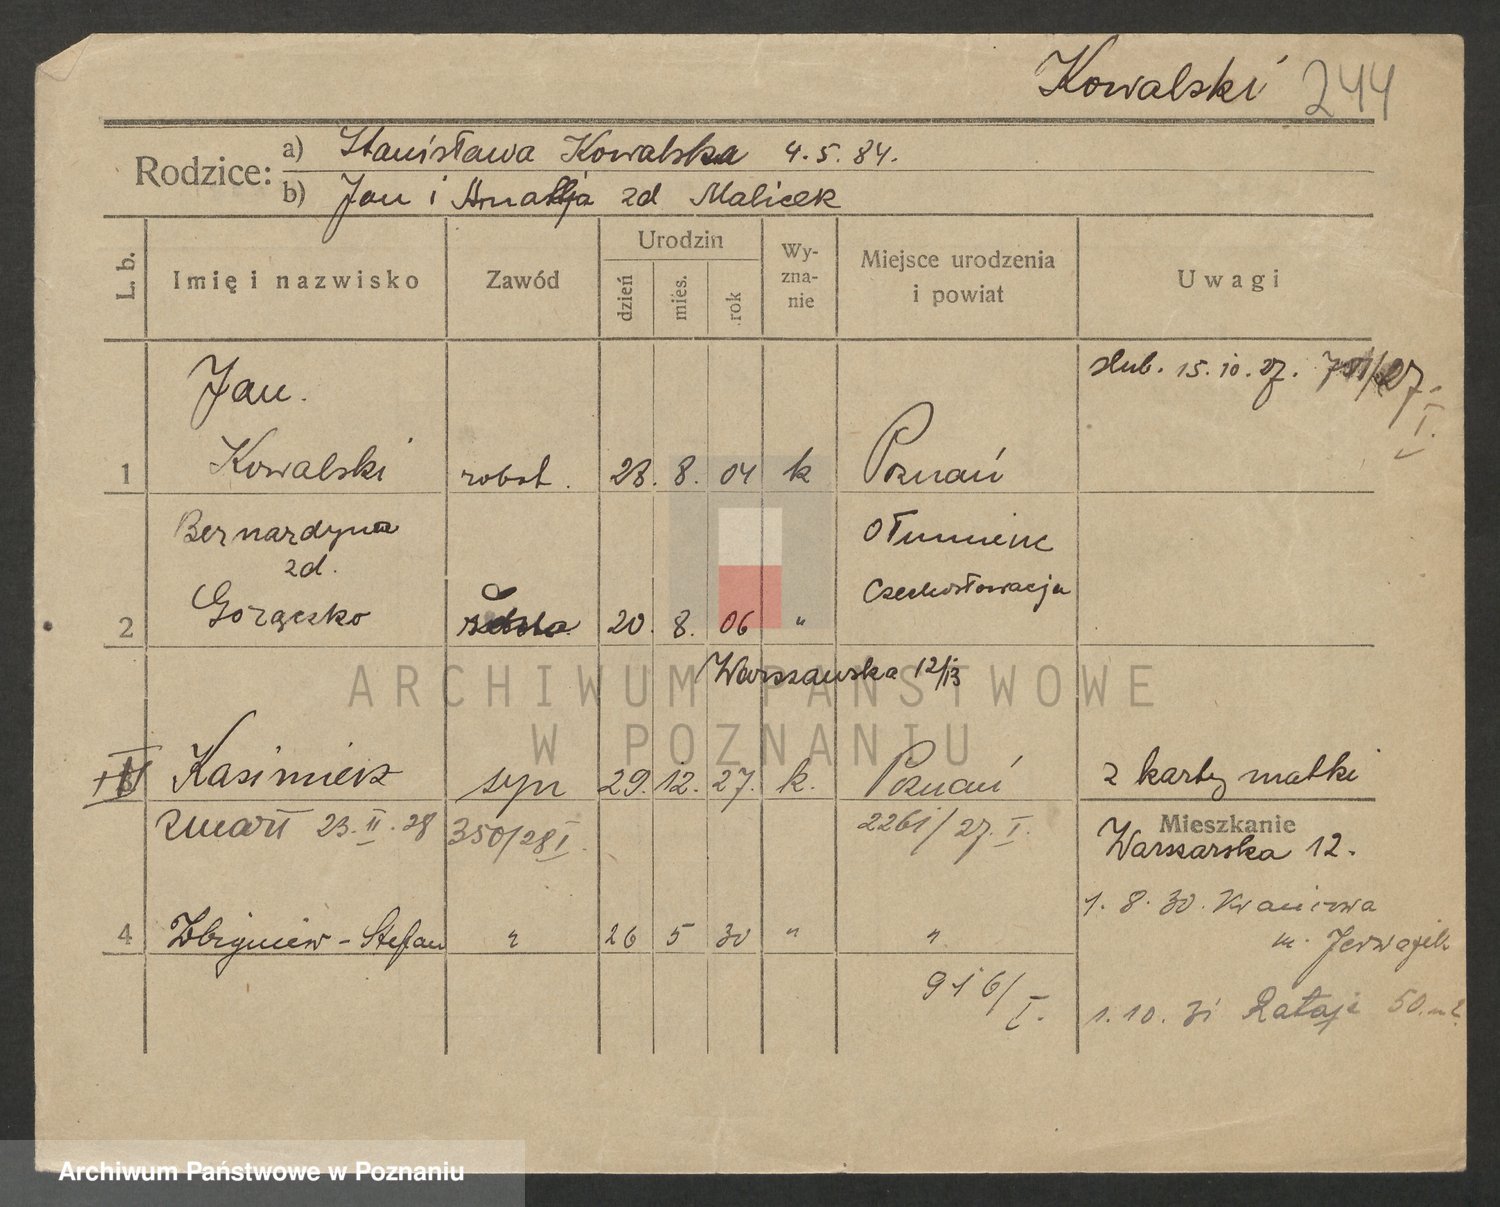 Kowalski 244
Rodzice:
a) Stanisława Kowalska 4.5.84.
b) Jan i zd Malicek
L. b.
Imię i nazwisko
Zawód
Urodzin
dzień
mies.
rok
Wy-
zna-
nie
Miejsce urodzenia
i powiat
Uwagi
Jan.
ślub. 15.10.27.
I.
1 Kowalski robot. 28. 8. 04 k Poznań
Bernardyna
zd.
Ołumienc
Czechosłowacja
2 Gorączko 20. 8. 06 "
Warszawska 12/13
ARCHIWUM PAŃSTWOWE
W POZNANIU
Kasimierz syn 29. 12. 27. k. Poznań z karty matki
zmarł 23.II.28 350/28 I. 2261/27. I.
Mieszkanie
Warszarska 12.
1. 8. 30
4 Zbigniew - Stefan " 26 5 30 " "
916/I.
1. 10. 31 Rataje 50.
Archiwum Państwowe w Poznaniu